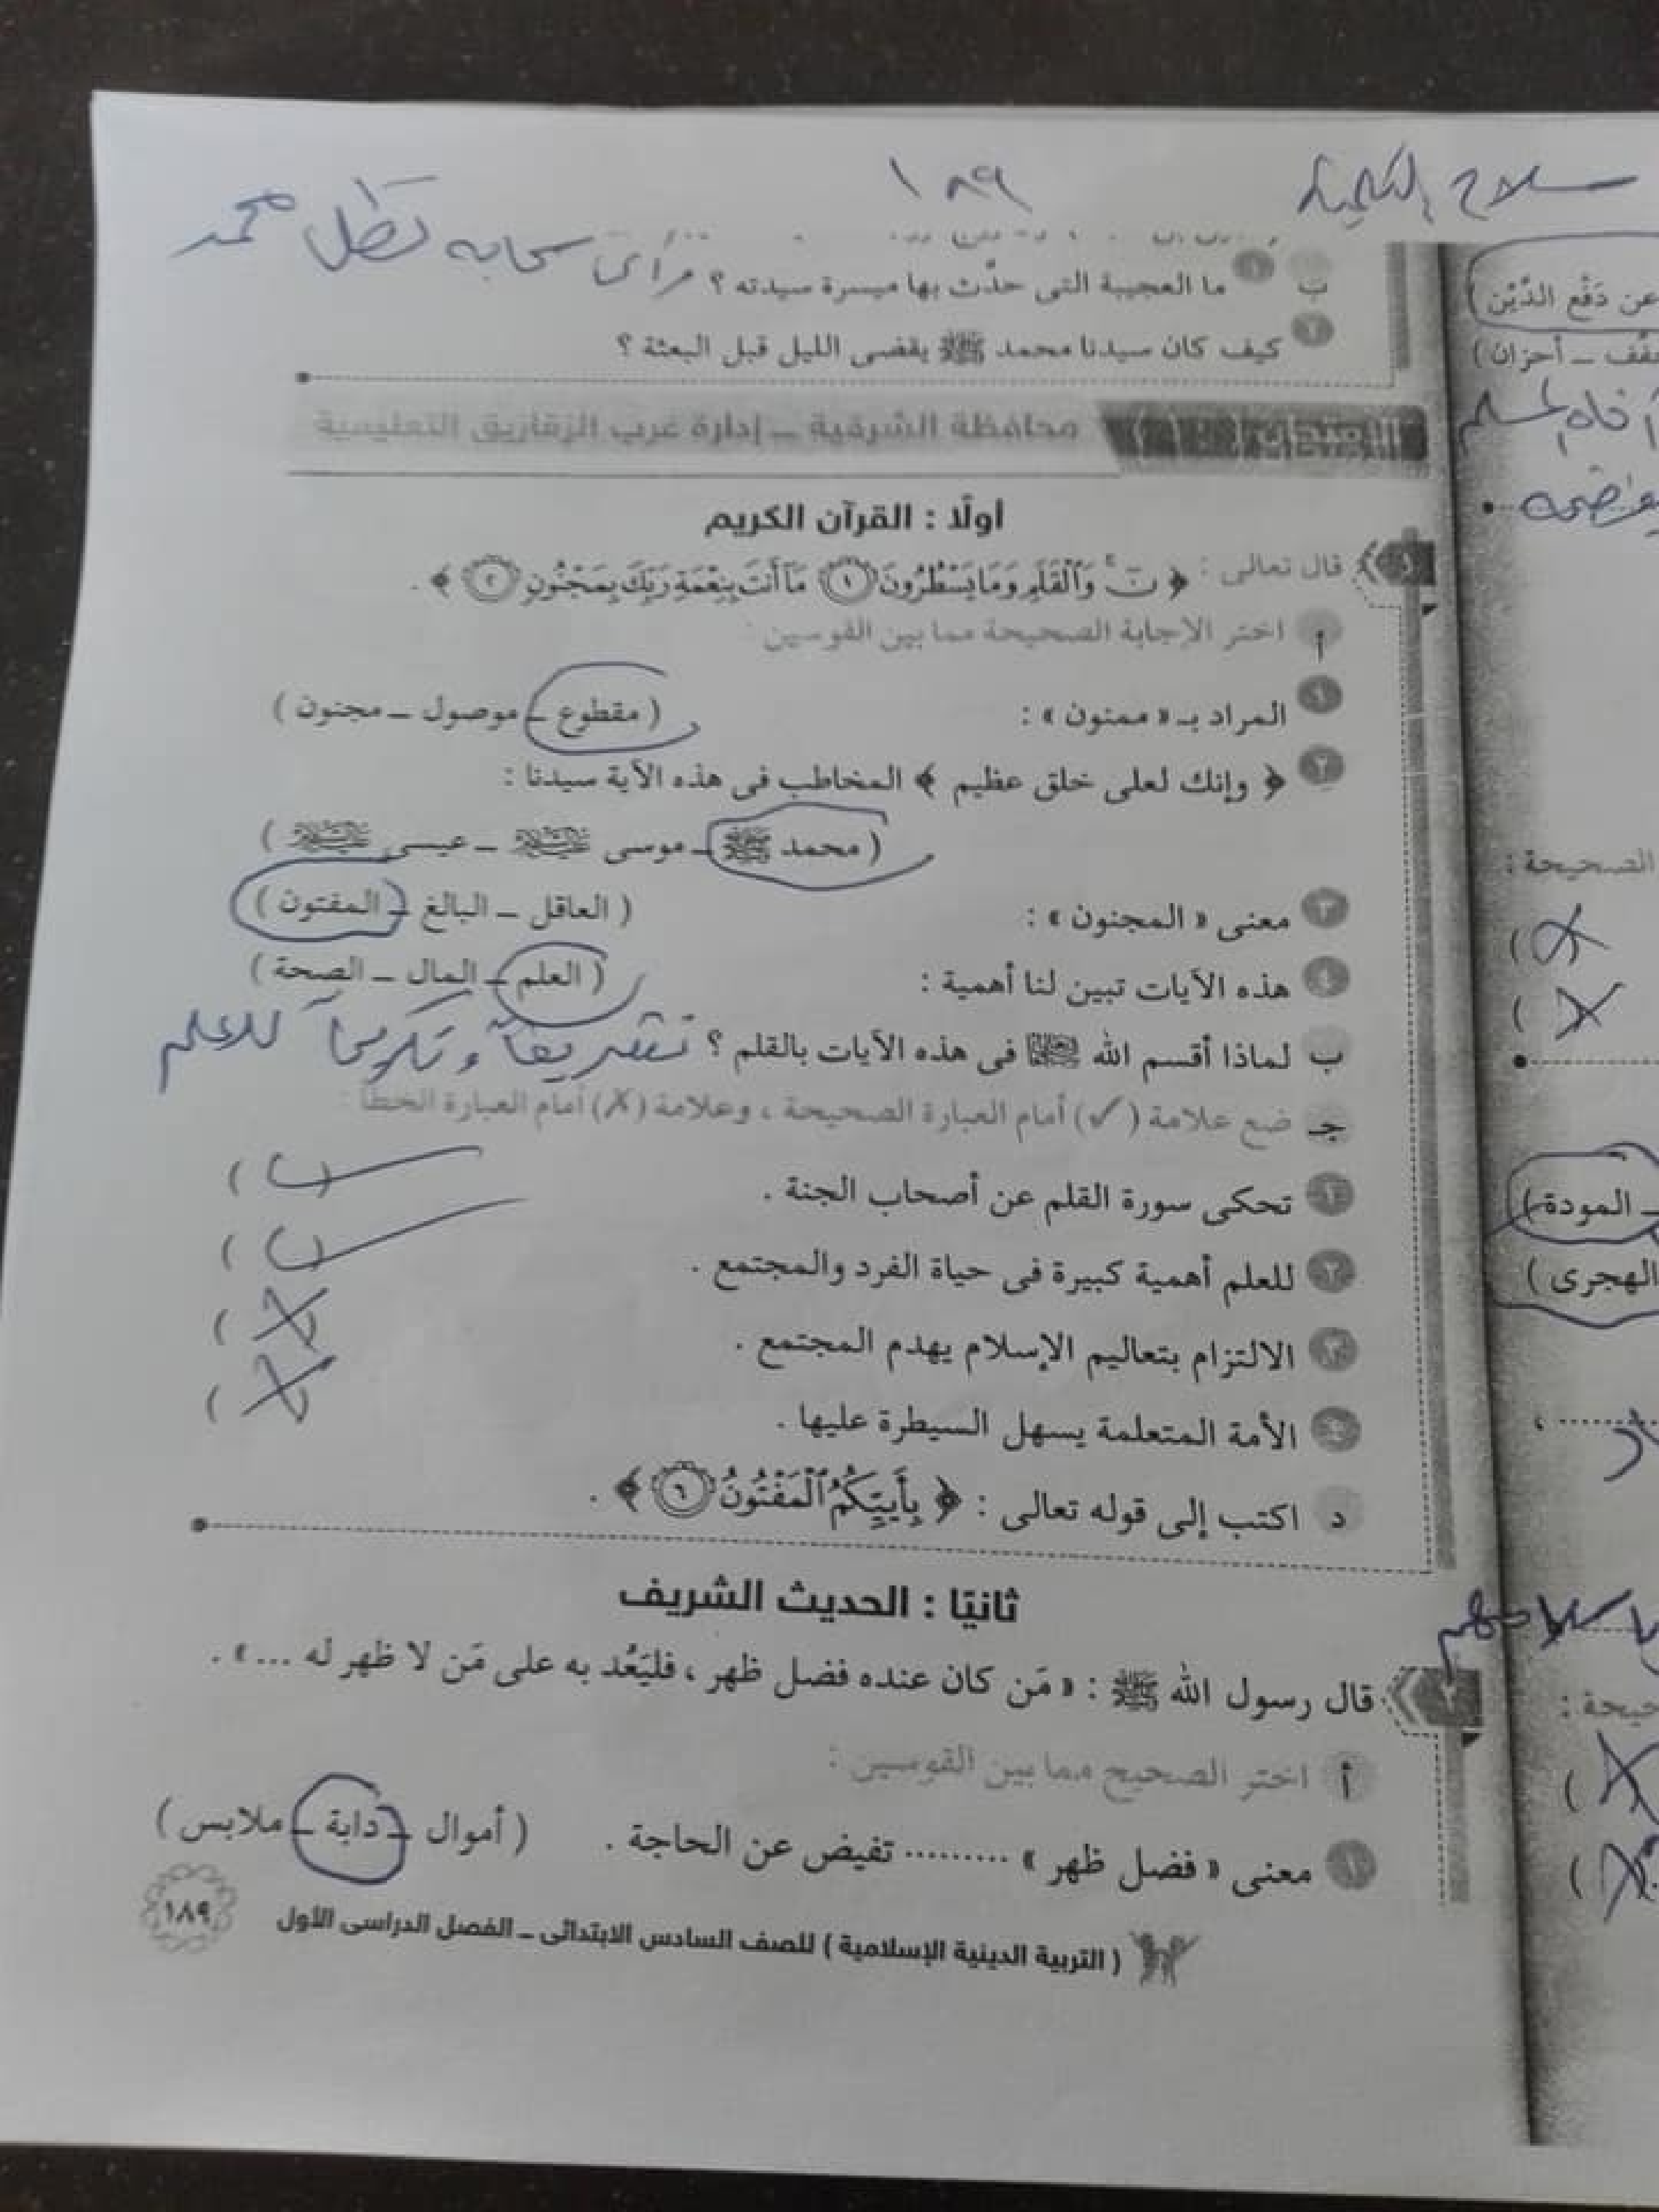 سلاح التلميذ ١٨٩
ب ١ ما العجيبة التى حدَّث بها ميسرة سيدته ؟ رأى سحابه تظل محمد
٢ كيف كان سيدنا محمد ﷺ يقضى الليل قبل البعثة ؟
محافظة الشرقية – إدارة غرب الزقازيق التعليمية
أولًا : القرآن الكريم
١ قال تعالى : ﴿ نٓ وَٱلْقَلَمِ وَمَا يَسْطُرُونَ ١ مَآ أَنتَ بِنِعْمَةِ رَبِّكَ بِمَجْنُونٍ ٢ ﴾ .
أ اختر الإجابة الصحيحة مما بين القوسين :
١ المراد بـ « ممنون » : ( مقطوع – موصول – مجنون )
٢ ﴿ وإنك لعلى خلق عظيم ﴾ المخاطب فى هذه الآية سيدنا :
( محمد ﷺ – موسى – عيسى )
٣ معنى « المجنون » : ( العاقل – البالغ – المفتون )
٤ هذه الآيات تبين لنا أهمية : ( العلم – المال – الصحة )
ب لماذا أقسم الله فى هذه الآيات بالقلم ؟ تشريفاً وتكريماً للعلم
جـ ضع علامة (✓) أمام العبارة الصحيحة ، وعلامة (✗) أمام العبارة الخطأ :
١ تحكى سورة القلم عن أصحاب الجنة . ( ✓ )
٢ للعلم أهمية كبيرة فى حياة الفرد والمجتمع . ( ✓ )
٣ الالتزام بتعاليم الإسلام يهدم المجتمع . ( ✗ )
٤ الأمة المتعلمة يسهل السيطرة عليها . ( ✗ )
د اكتب إلى قوله تعالى : ﴿ بِأَييِّكُمُ ٱلْمَفْتُونُ ٦ ﴾ .
ثانيًا : الحديث الشريف
٢ قال رسول الله ﷺ : « مَن كان عنده فضل ظهر ، فليَعُد به على مَن لا ظهر له ... » .
أ اختر الصحيح مما بين القوسين :
١ معنى « فضل ظهر » ......... تفيض عن الحاجة . ( أموال – دابة – ملابس )
( التربية الدينية الإسلامية ) للصف السادس الابتدائى – الفصل الدراسى الأول
١٨٩
عن دَفْع الدَّيْن )
– أحزان )
أخاه المسلم
الصحيحة :
( ✗ )
( ✗ )
– المودة )
الهجرى )
( ✗ )
( ✗ )